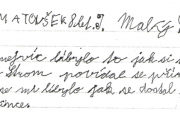 MATOUŠEK 8let. Malký
nejvíc líbylo to jak si s
Strom povídal se
se mi líbylo jak se dostal